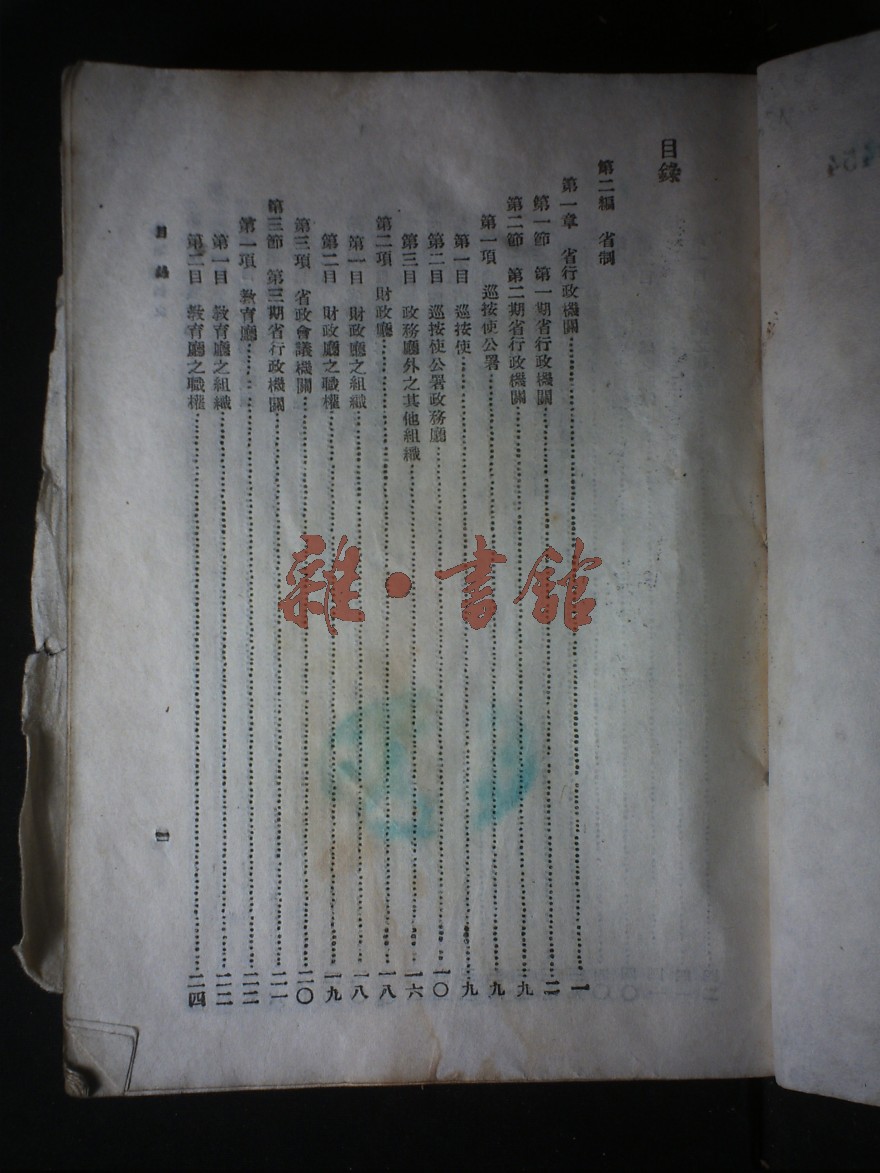 目錄
第二編　省制
第一章　省行政機關……一
第一節　第一期省行政機關……二
第二節　第二期省行政機關……九
第一項　巡按使公署……九
第一目　巡按使……九
第二目　巡按使公署政務廳……一〇
第三目　政務廳外之其他組織……一六
第二項　財政廳……一八
第一目　財政廳之組織……一八
第二目　財政廳之職權……一九
第三項　省政會議機關……二〇
第三節　第三期省行政機關……二一
第一項　教育廳……二二
第一目　教育廳之組織……二二
第二目　教育廳之職權……二四
目
雜·書館